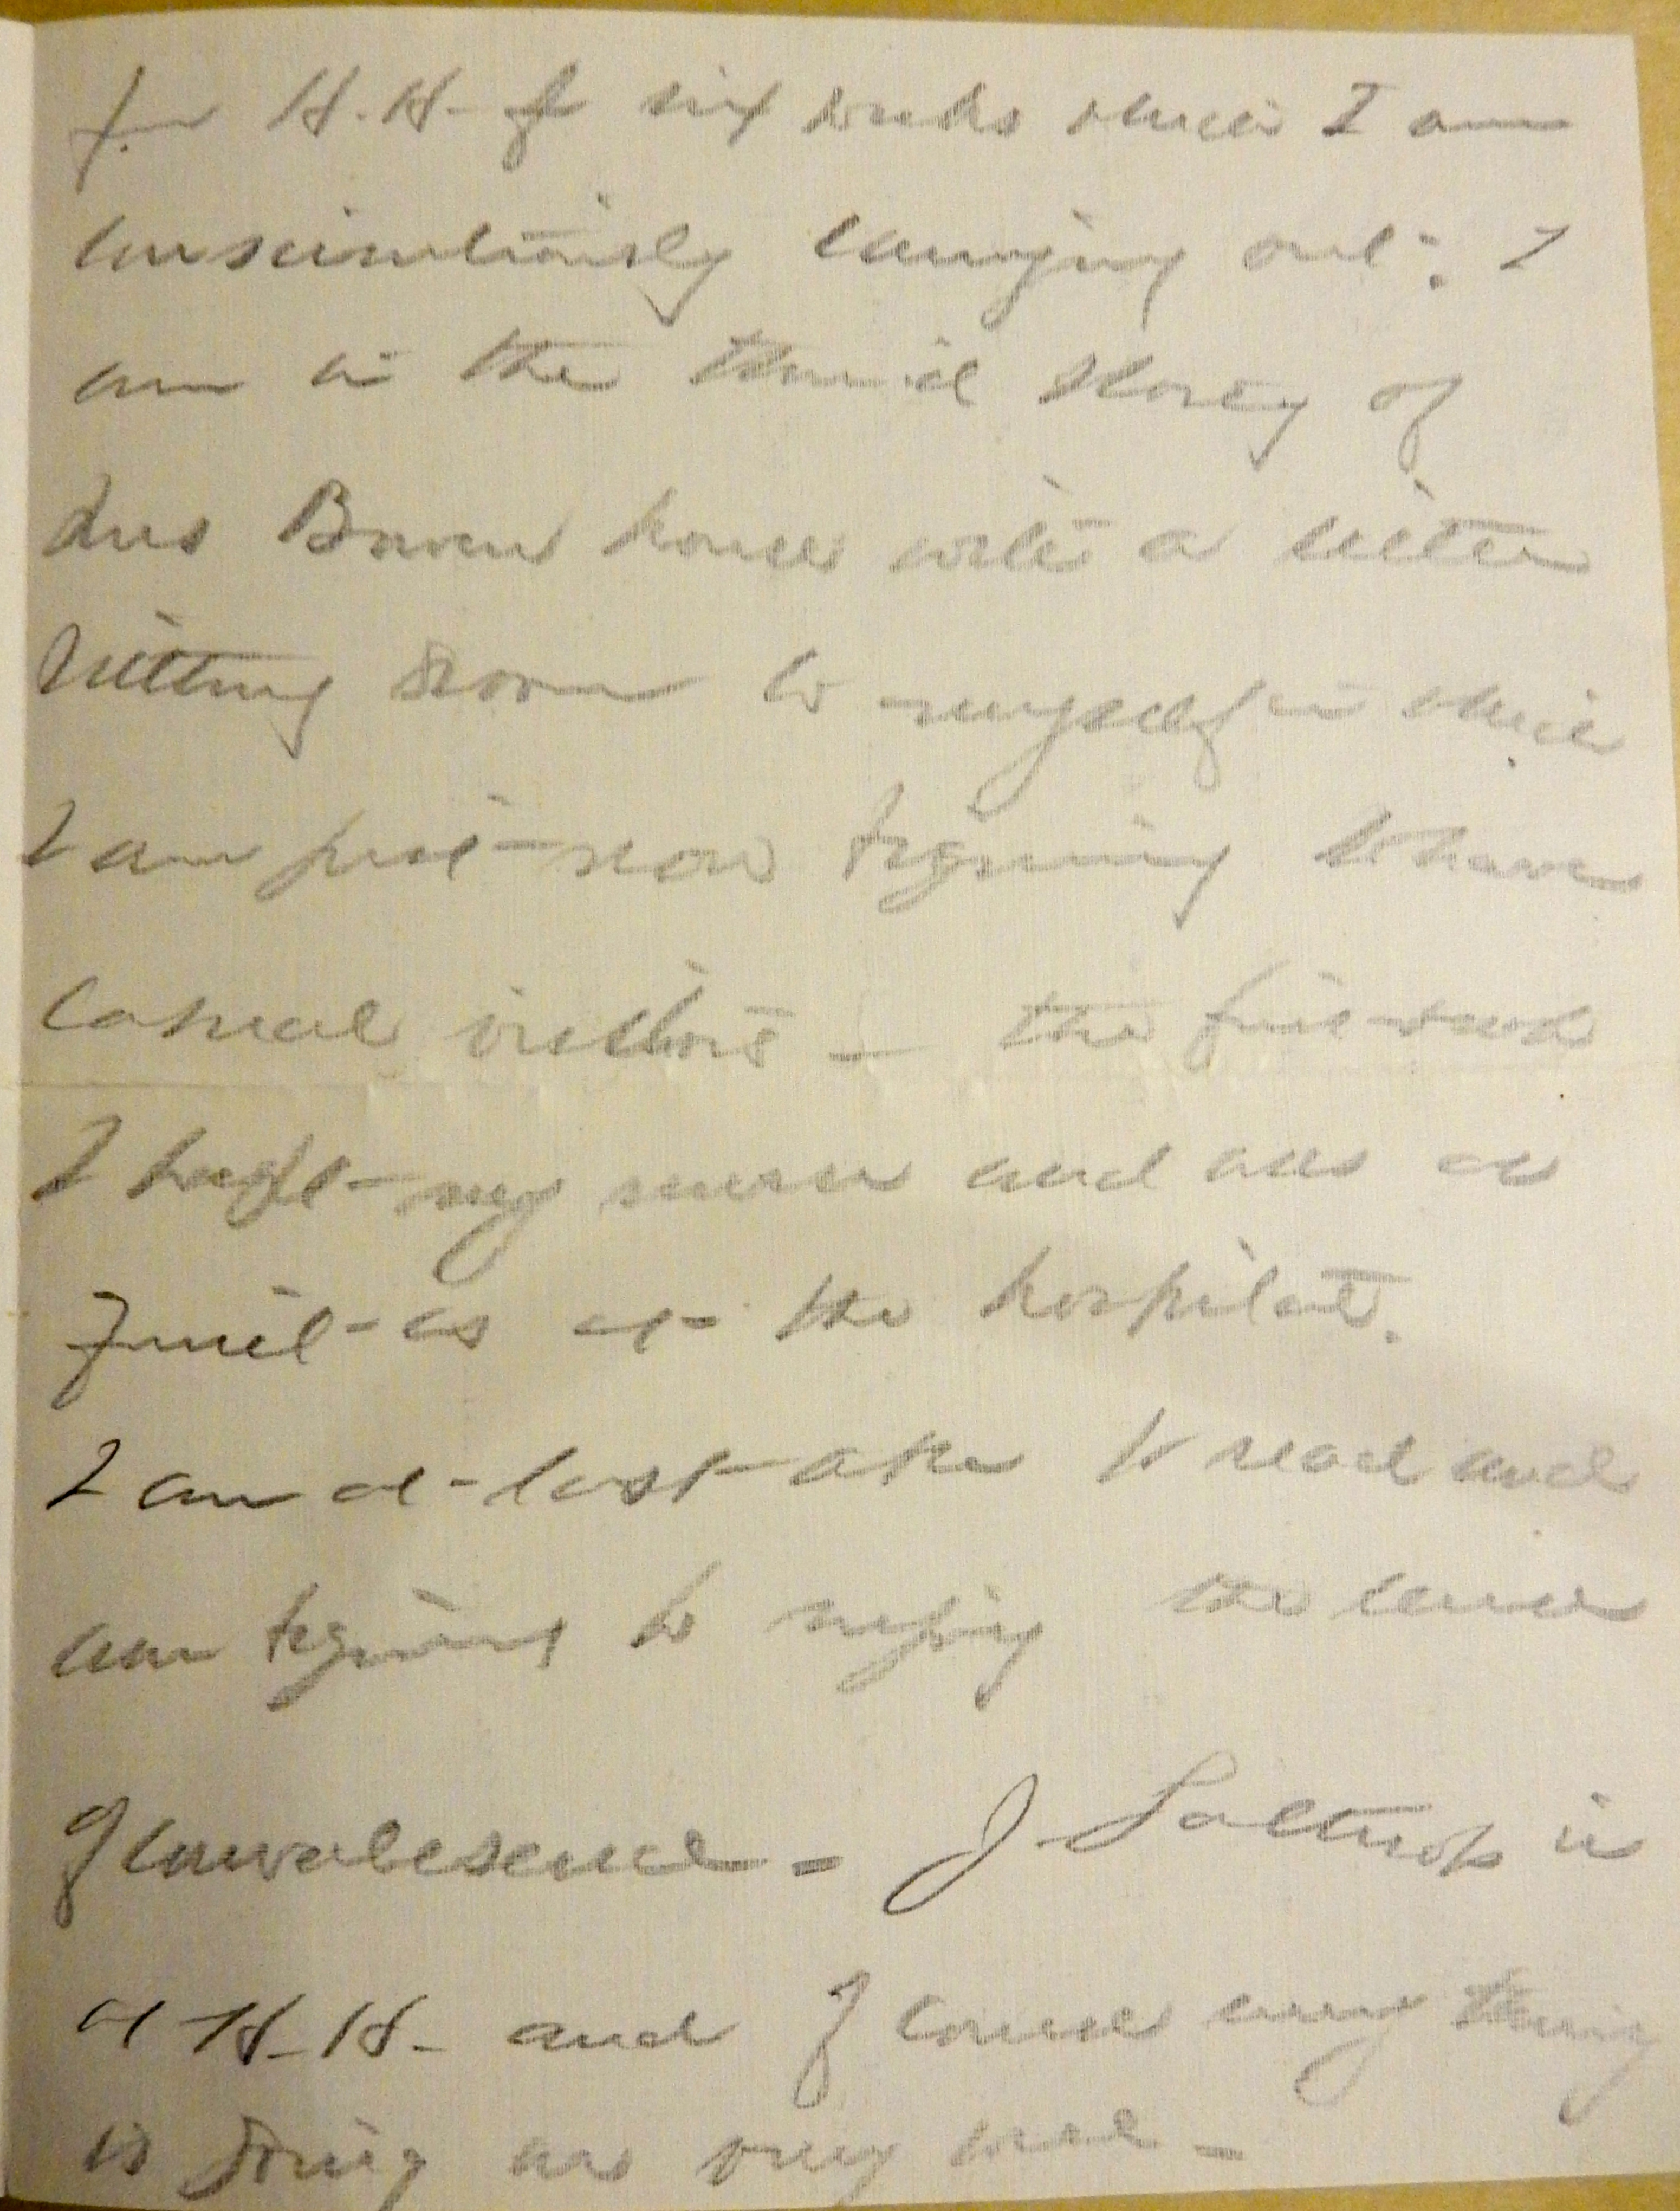 for H.H. of six weeks which I am
conscientiously carrying out: I
am in the third storey of
house with a little
sitting room to myself in which
I am just now beginning to have
casual visitors — the first week
I kept my nurse and was as
quiet as at the hospital.
I am at last able to read and
am beginning to enjoy the
of convalesence - J. Lathrop is
at H.H. and of course every thing
is going on very well -